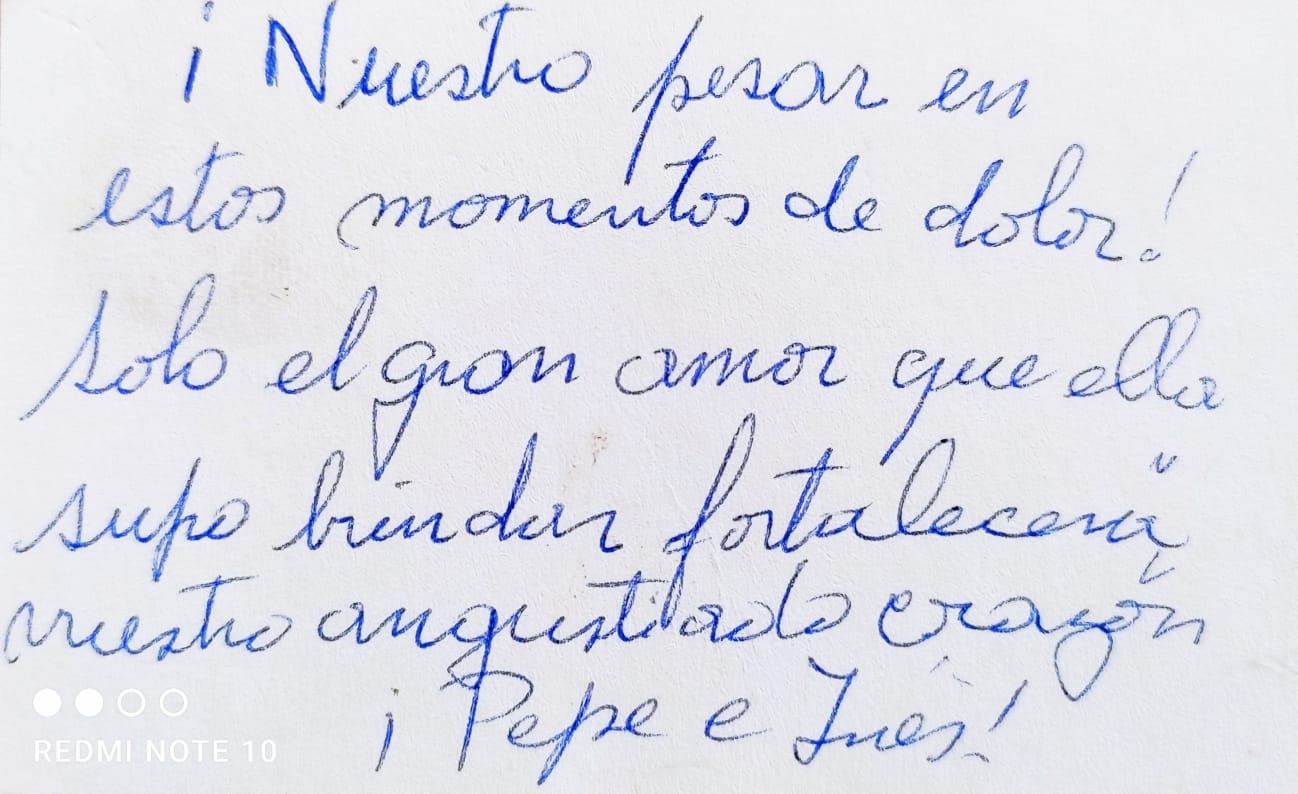 ¡Nuestro pesar en
estos momentos de dolor!
Solo el gran amor que ella
supo brindar fortalecerá
vuestro angustiado corazón
¡Pepe e Inés!
REDMI NOTE 10